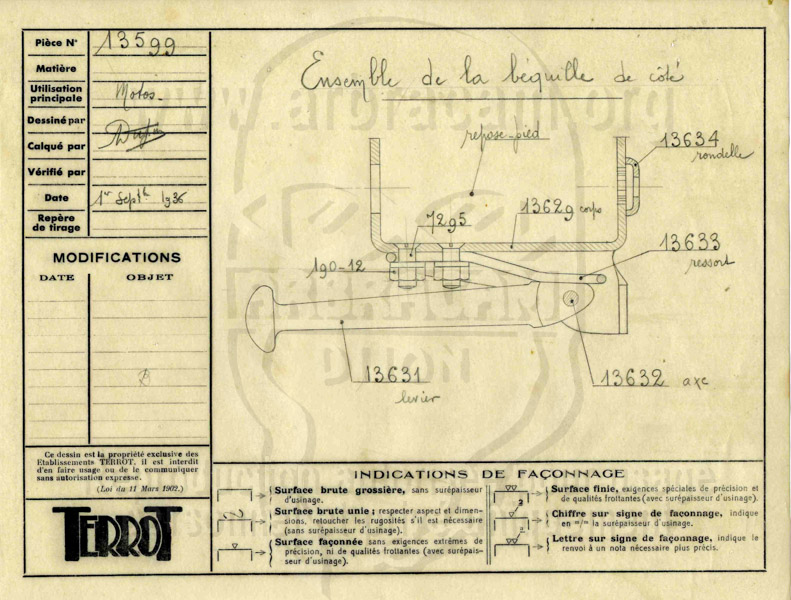 Pièce N° 13599
Matière
Utilisation principale Motos.
Dessiné par
Calqué par
Vérifié par
Date 1er Septbre 1936
Repère de tirage
MODIFICATIONS
DATE OBJET
B
Ce dessin est la propriété exclusive des
Etablissements TERROT, il est interdit
d'en faire usage ou de le communiquer
sans autorisation expresse.
(Loi du 11 Mars 1902.)
TERROT
Ensemble de la béquille de côté
repose-pied
13634
rondelle
7295
13629 corps
13633
ressort
190-12
13631
levier
13632 axe
www.arbracam.org
ARBRACAM
DIJON
INDICATIONS DE FAÇONNAGE
Surface brute grossière, sans surépaisseur
d'usinage.
Surface brute unie ; respecter aspect et dimen-
sions, retoucher les rugosités s'il est nécessaire
(sans surépaisseur d'usinage).
Surface façonnée sans exigences extrêmes de
précision, ni de qualités frottantes (avec surépais-
seur d'usinage).
Surface finie, exigences spéciales de précision et
de qualités frottantes (avec surépaisseur d'usinage).
Chiffre sur signe de façonnage, indique
en m/m la surépaisseur d'usinage.
Lettre sur signe de façonnage, indique le
renvoi à un nota nécessaire plus précis.